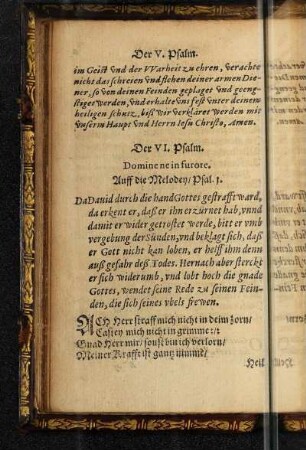 Der V. Psalm.
im Geist vnd der VVarheit zu ehren, verachte
nicht das schreien vnd flehen deiner armen Die-
ner, so von deinen Feinden geplaget vnd geeng-
stiget werden, vnd erhalte vns fest vnter deinem
heiligen schutz, biß wir verkläret werden mit
vnserm Haupt vnd Herrn Iesu Christo, Amen.
Der VI. Psalm.
Domine ne in furore.
Auff die Melodey/ Psal. 5.
DaDauid durch die hand Gottes gestrafft ward,
da erkent er, daß er ihn erzürnet hab, vnnd
damit er wider getröstet werde, bitt er vmb
vergebung der Sünden, vnd beklagt sich, daß
er Gott nicht kan loben, er helff ihm denn
auß gefahr deß Todes. Hernach aber sterckt
er sich widerumb, vnd lobt hoch die gnade
Gottes, wendet seine Rede zu seinen Fein-
den, die sich seines vbels frewen.
ACH Herr straff mich nicht in deim zorn/
Castey mich nicht in grimme:/:
Gnad Herr mir/ sonst bin ich verlorn/
Meiner Krafft ist gantz nimme/
Heil